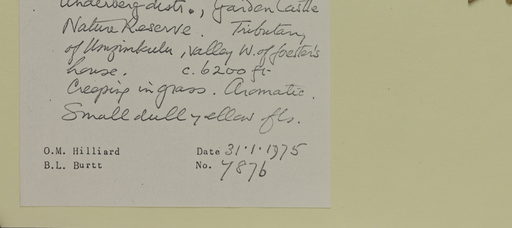 Underberg distr., Garden Castle
Nature Reserve. Tributary
of Umzimkulu, valley W. of forester's
house. c. 6200 ft
Creeping in grass. Aromatic.
Small dull yellow fls.
O.M. Hilliard Date 31·1·1975
B.L. Burtt No. 7876